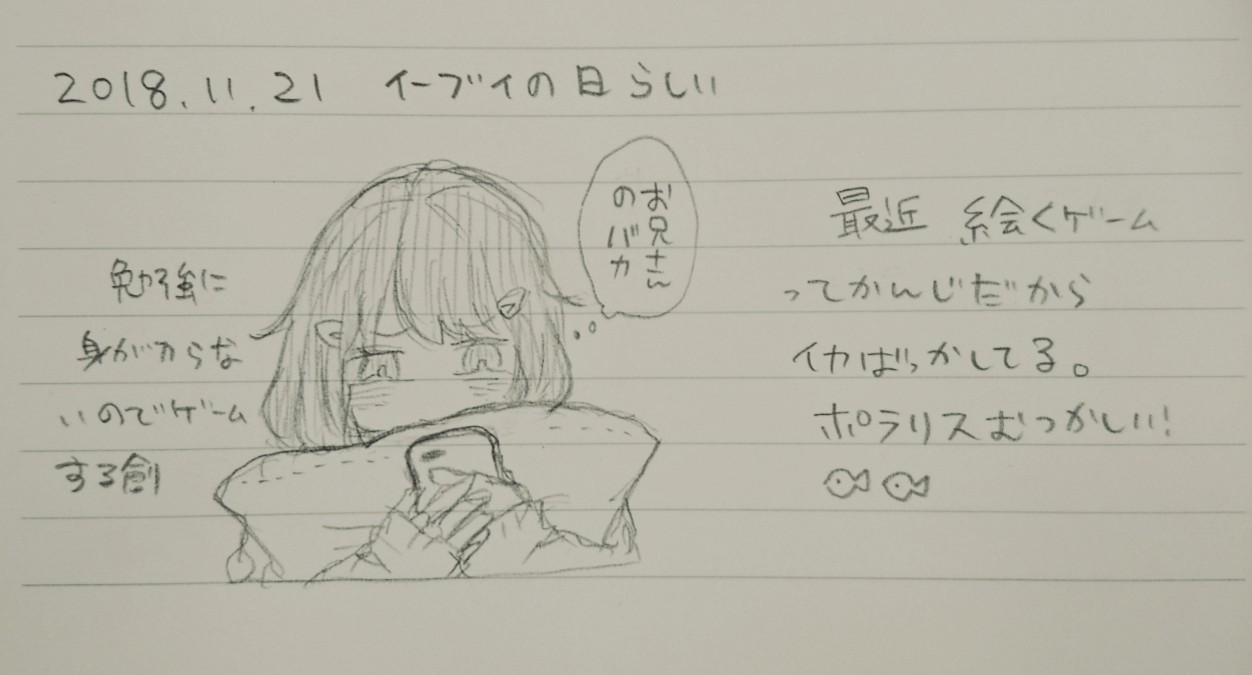 2018.11.21 イーブイの日らしい
お兄さん
のバカ
勉強に
身がからな
いのでゲーム
する創
最近 絵くゲーム
ってかんじだから
イカばっかしてる。
ポラリスむつかしい!